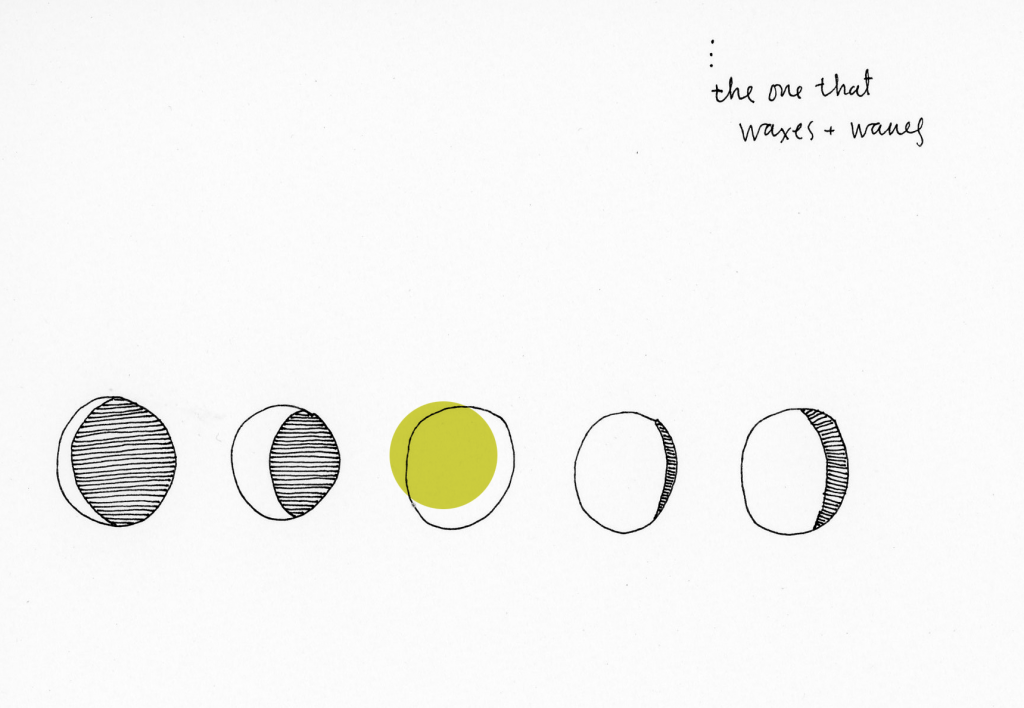 the one that
waxes + wanes